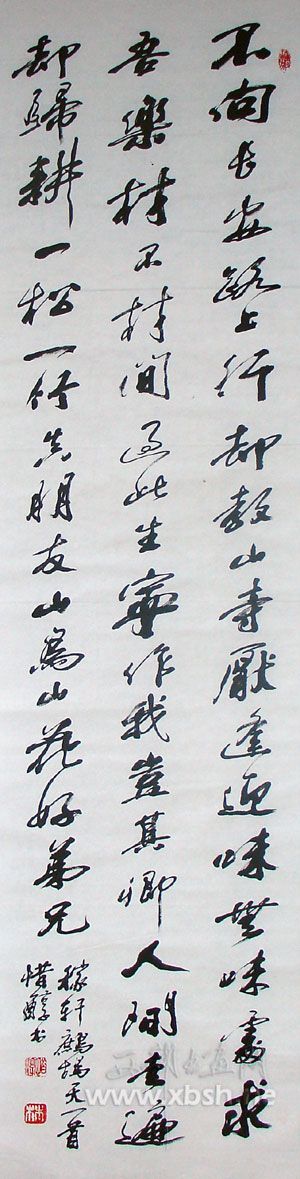 不向长安路上行却教山寺厭逢迎味無味處求
吾樂材不材間過此生寧作我豈其卿人間走遍
却歸耕一松一竹真朋友山鳥山花好弟兄
稼轩鹧鸪天一首
惜醇书
www.xbsh.net